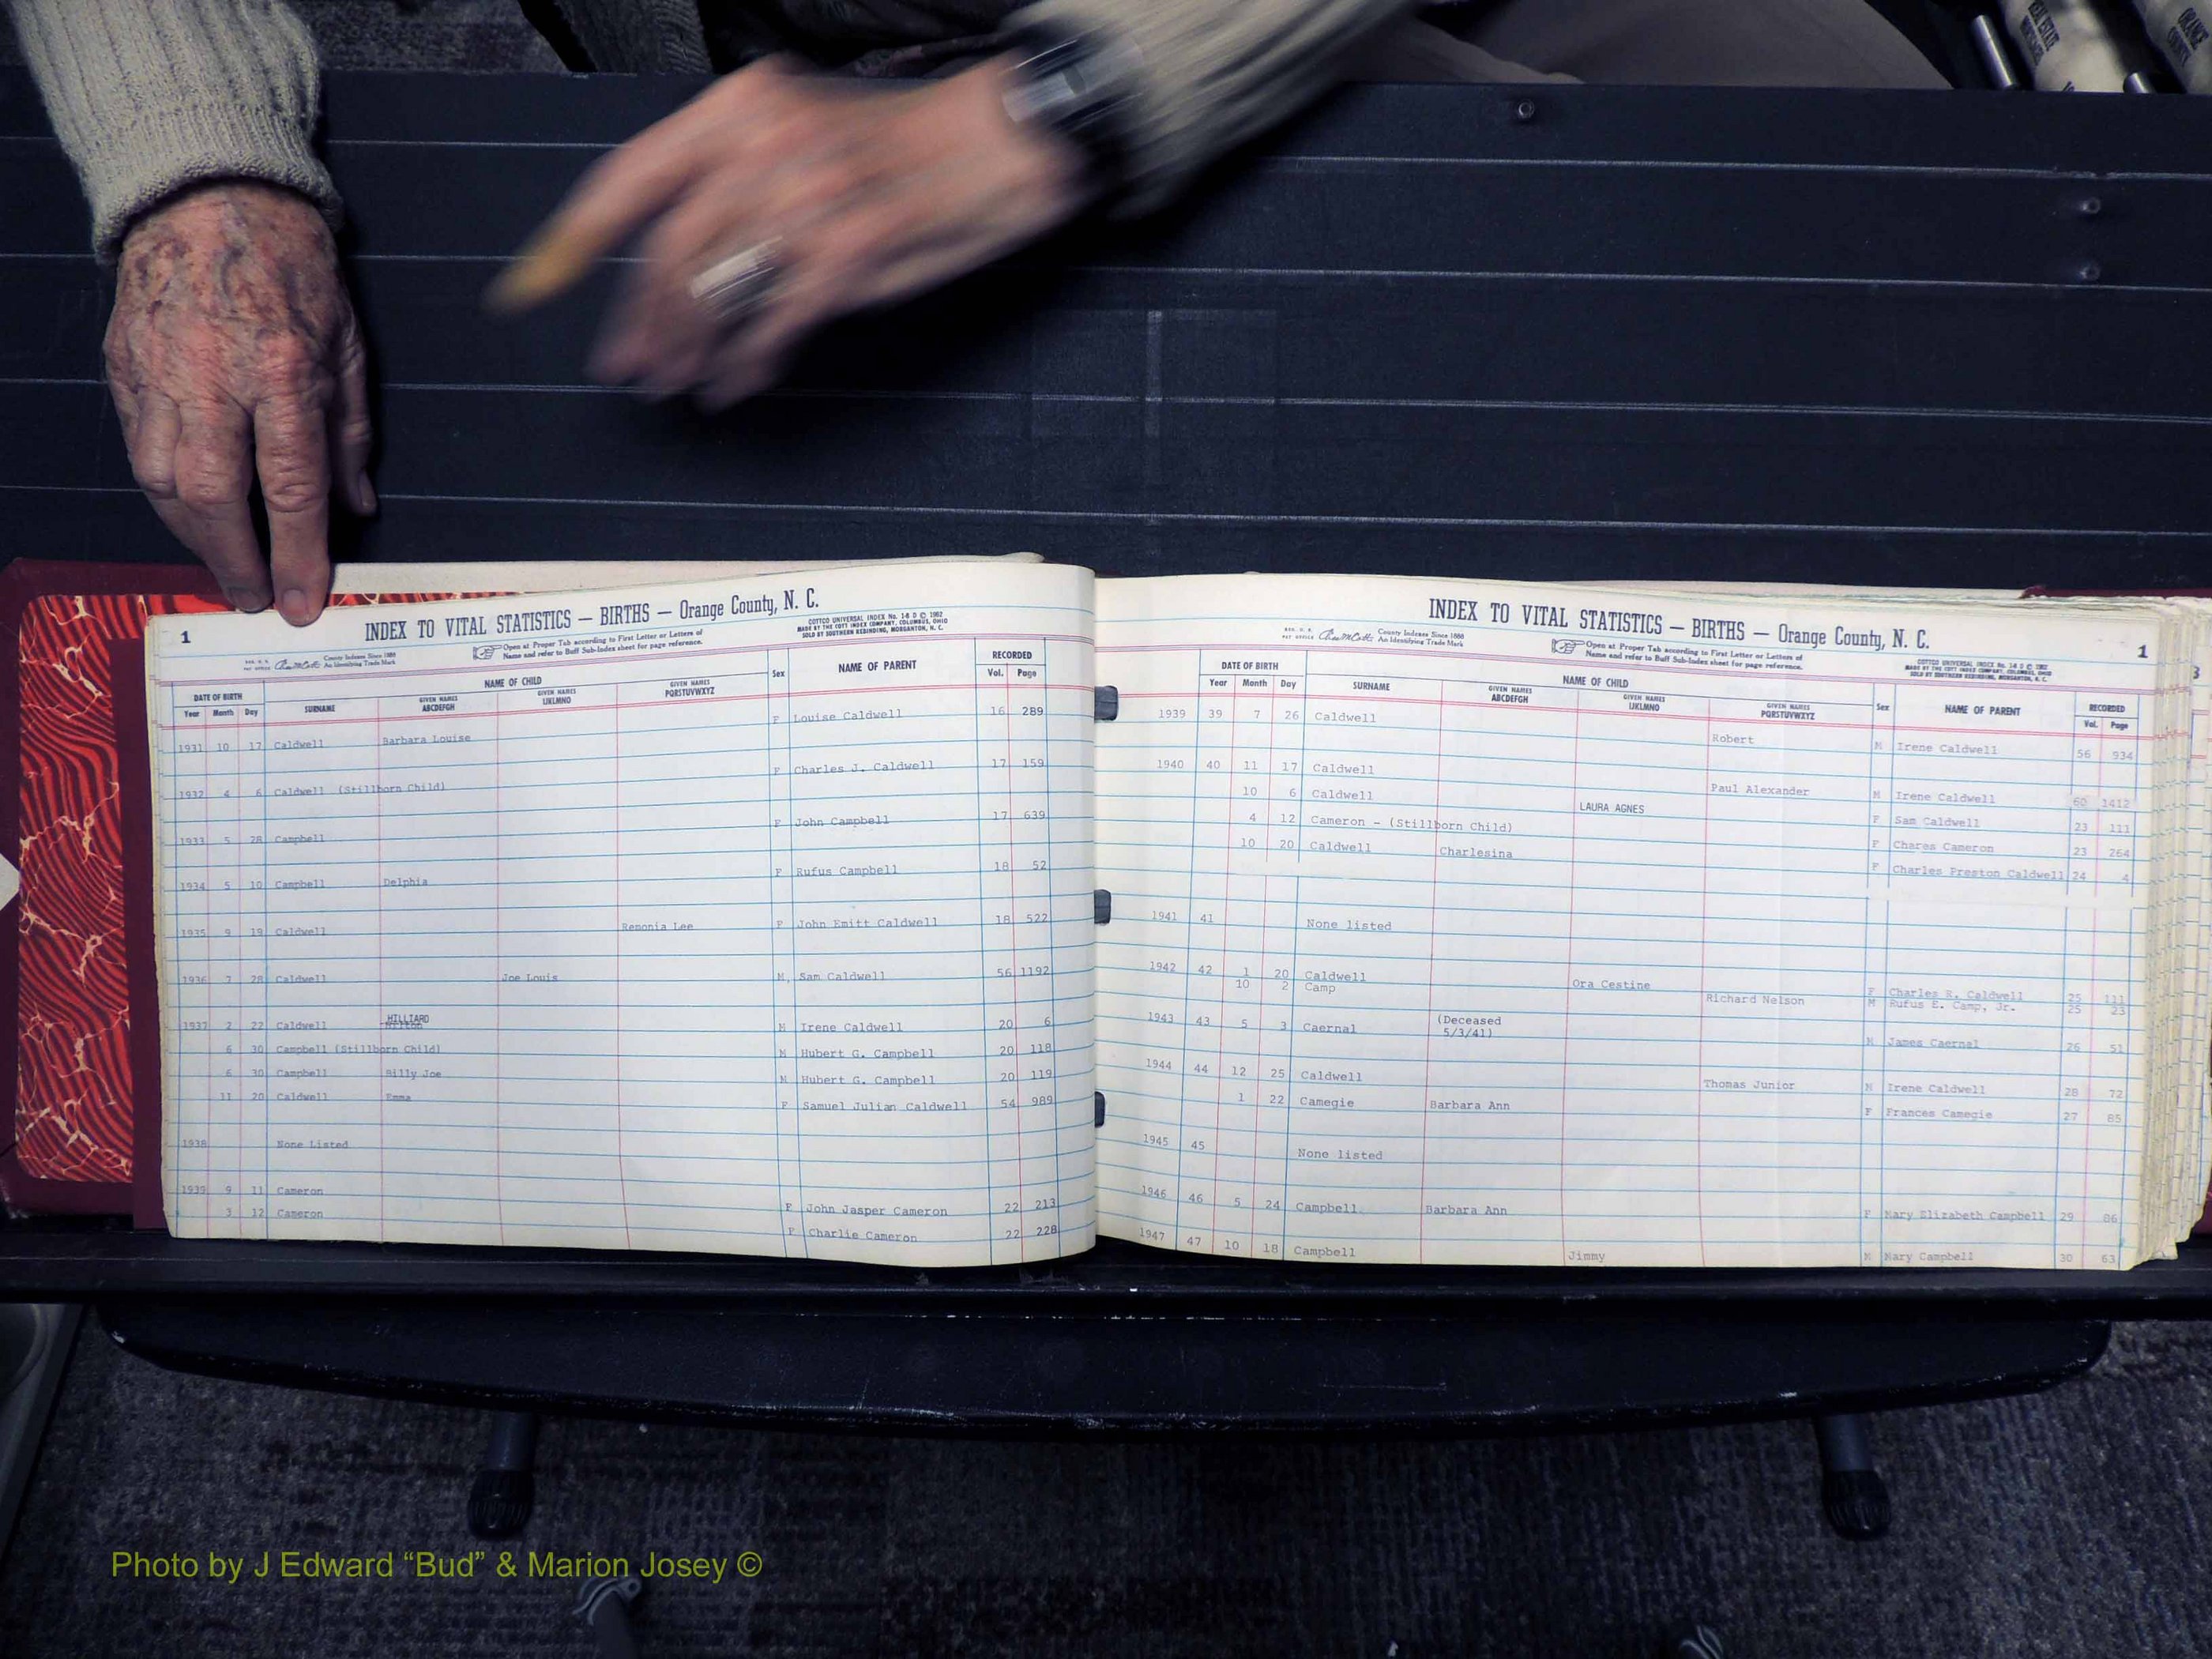 REAL ESTATE
ORANGE COUNTY
1
INDEX TO VITAL STATISTICS — BIRTHS — Orange County, N. C.
COTTCO UNIVERSAL INDEX No. 14 D © 1962
MADE BY THE COTT INDEX COMPANY, COLUMBUS, OHIO
SOLD BY SOUTHERN REBINDING, MORGANTON, N. C.
County Indexes Since 1888
An Identifying Trade Mark
Open at Proper Tab according to First Letter or Letters of
Name and refer to Buff Sub-Index sheet for page reference.
DATE OF BIRTH NAME OF CHILD Sex NAME OF PARENT RECORDED
Year Month Day SURNAME GIVEN NAMES ABCDEFGH GIVEN NAMES IJKLMNO GIVEN NAMES PQRSTUVWXYZ Vol. Page
1931 10 17 Caldwell Barbara Louise F Louise Caldwell 16 289
1932 4 6 Caldwell (Stillborn Child) F Charles J. Caldwell 17 159
1933 5 28 Campbell F John Campbell 17 639
1934 5 10 Campbell Delphia F Rufus Campbell 18 52
1935 9 19 Caldwell Remonia Lee F John Emitt Caldwell 18 522
1936 7 28 Caldwell Joe Louis M. Sam Caldwell 56 1192
1937 2 22 Caldwell HILLIARD M Irene Caldwell 20 6
6 30 Campbell (Stillborn Child) M Hubert G. Campbell 20 118
6 30 Campbell Billy Joe M Hubert G. Campbell 20 119
11 20 Caldwell Emma F Samuel Julian Caldwell 54 989
1938 None Listed
1939 9 11 Cameron F John Jasper Cameron 22 213
3 12 Cameron F Charlie Cameron 22 228
INDEX TO VITAL STATISTICS — BIRTHS — Orange County, N. C.
1
County Indexes Since 1888
An Identifying Trade Mark
Open at Proper Tab according to First Letter or Letters of
Name and refer to Buff Sub-Index sheet for page reference.
COTTCO UNIVERSAL INDEX No. 14 D © 1962
MADE BY THE COTT INDEX COMPANY, COLUMBUS, OHIO
SOLD BY SOUTHERN REBINDING, MORGANTON, N. C.
DATE OF BIRTH NAME OF CHILD Sex NAME OF PARENT RECORDED
Year Month Day SURNAME GIVEN NAMES ABCDEFGH GIVEN NAMES IJKLMNO GIVEN NAMES PQRSTUVWXYZ Vol. Page
1939 39 7 26 Caldwell Robert M Irene Caldwell 56 934
1940 40 11 17 Caldwell Paul Alexander M Irene Caldwell 60 1412
10 6 Caldwell LAURA AGNES F Sam Caldwell 23 111
4 12 Cameron - (Stillborn Child) F Chares Cameron 23 264
10 20 Caldwell Charlesina F Charles Preston Caldwell 24 4
1941 41 None listed
1942 42 1 20 Caldwell Ora Cestine F Charles R. Caldwell 25 111
10 2 Camp Richard Nelson M Rufus E. Camp, Jr. 25 23
1943 43 5 3 Caernal (Deceased 5/3/41) M James Caernal 26 51
1944 44 12 25 Caldwell Thomas Junior M Irene Caldwell 28 72
1 22 Camegie Barbara Ann F Frances Camegie 27 85
1945 45 None listed
1946 46 5 24 Campbell Barbara Ann F Mary Elizabeth Campbell 29 86
1947 47 10 18 Campbell Jimmy M Mary Campbell 30 63
Photo by J Edward “Bud” & Marion Josey ©